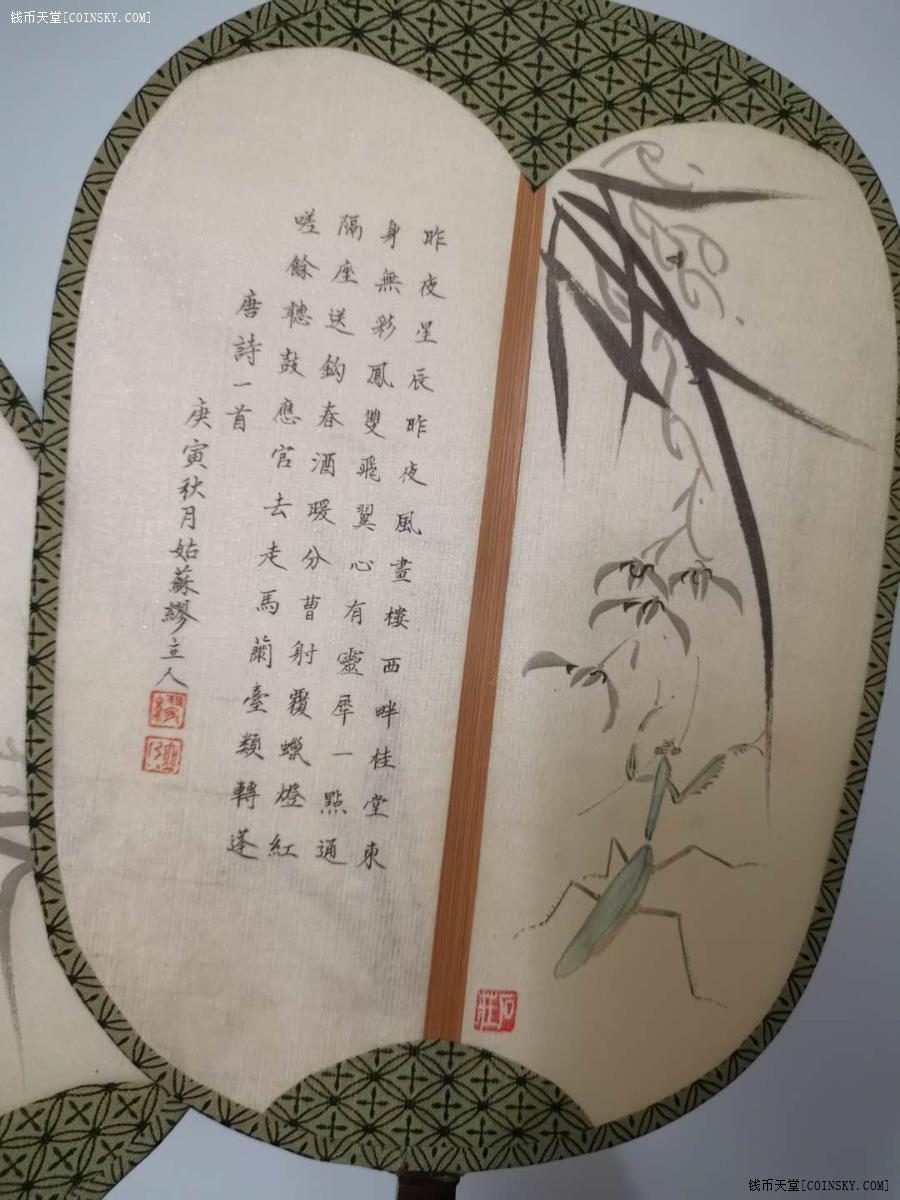 钱币天堂[COINSKY.COM]
昨夜星辰昨夜風畫樓西畔桂堂東
身無彩鳳雙飛翼心有靈犀一點通
隔座送鈎春酒暖分曹射覆蠟燈紅
嗟餘聽鼓應官去走馬蘭臺類轉蓬
唐詩一首
庚寅秋月姑蘇繆立人
石莊
钱币天堂[COINSKY.COM]